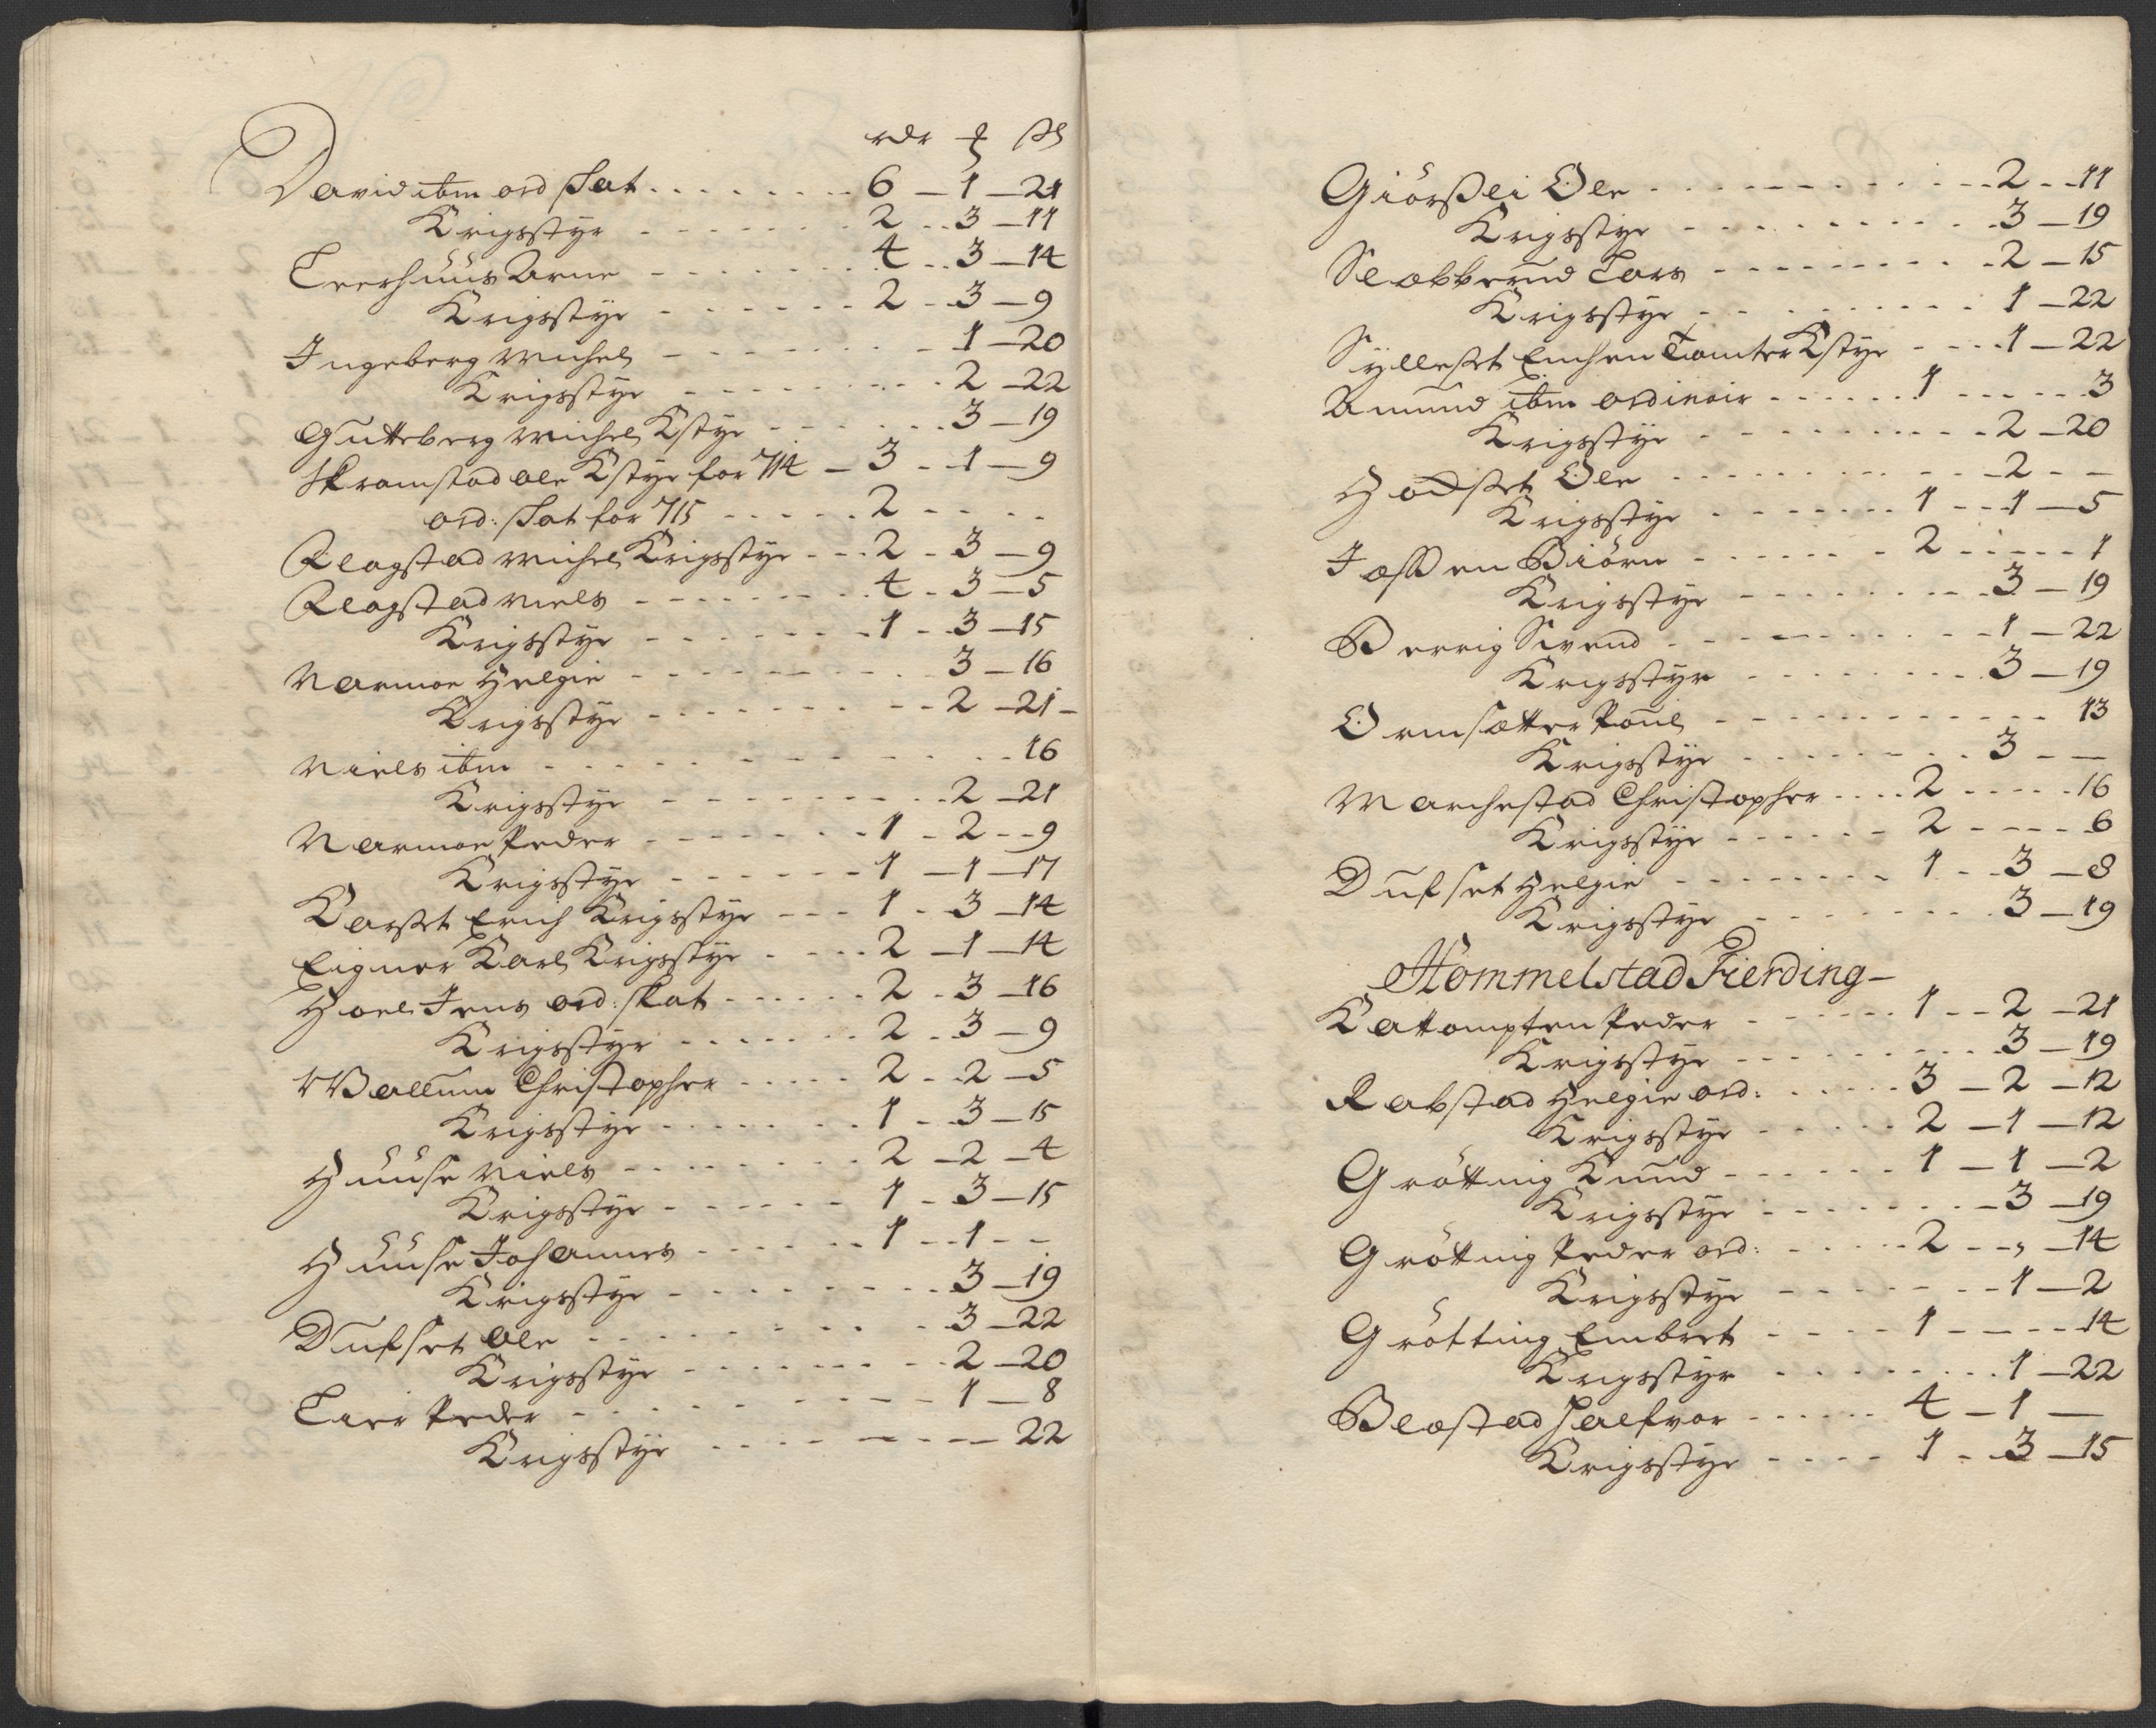 rdr ƒ ß
David ibm ord skat . . . . . . . 6 – 1 – 21
Krigsstyr . . . . . . 2 . . 3 – 11
Leerhuus Arne . . . . . . 4 . . 3 – 14
Krigsstyr . . . . . . 2 – 3 – 9
Ingeberg Michel . . . . . . 1 – 20
Krigsstyr . . . . . . 2 – 22
Gutteberg Michel Kstyr . . . . . . 3 – 19
Skramstad Ole Kstyr for 714 – 3 – 1 – 9
ord: skat for 715 . . . . . 2 – – – –
Flagstad Michel Krigsstyr . . . 2 – 3 – 9
Flagstad Niels . . . . . . 4 – 3 – 5
Krigsstyr . . . . . . 1 – 3 – 15
Narmoe Helgie . . . . . . 3 – 16
Krigsstyr . . . . . . 2 – 21 –
Niels ibm . . . . . . 16
Krigsstyr . . . . . . 2 – 21
Narmoe Peder . . . . . . 1 – 2 – 9
Krigsstyr . . . . . . 1 – 1 – 17
Karset Erich Krigsstyr – – – 1 – 3 – 14
Eigner Karl Krigsstyr . . . . 2 – 1 – 14
Hoel Jens ord: skat . . . . . . 2 – 3 – 16
Krigsstyr . . . . . . 2 – 3 – 9
Wallum Christopher . . . . . 2 – 2 – 5
Krigsstyr . . . . . . 1 – 3 – 15
Huuse Niels . . . . . . 2 – 2 – 4
Krigsstyr . . . . . . 1 – 3 – 15
Huuse Johannes . . . . . . 1 – 1 – –
Krigsstyr . . . . . . 3 – 19
Dufset Ole . . . . . . 3 – 22
Krigsstyr . . . . . . 2 – 20
Lier Peder . . . . . . 1 – 8
Krigsstyr . . . . . . 22
Giörßlei Ole . . . . . . 2 – 11
Krigsstyr . . . . . . 3 – 19
Slabberud Lars . . . . . . 2 – 15
Krigsstyr . . . . . . 1 – 22
Sylleset Tomter Kstyr . . . 1 – 22
Amund ibm ordinair . . . . . . 1 . . . . . 3
Krigsstyr . . . . . . 2 – 20
Hodset Ole . . . . . . 2 – –
Krigsstyr . . . . . . 1 – 1 – 5
Biörn . . . . . . 2 . . . . . 1
Krigsstyr . . . . . . 3 – 19
Berrig Svend . . . . . . 1 – 22
Krigsstyr . . . . . . 3 – 19
Ormsætter Poul . . . . . . 13
Krigsstyr . . . . . . 3 – –
Marchestad Christopher . . . . 2 . . . . . 16
Krigsstyr . . . . . . 2 – – – – 6
Dufset Helgie . . . . . . 1 – 3 – 8
Krigsstyr . . . . . . 3 – 19
Hommelstad Fierding –
Kattompten Peder . . . . . . 1 – 2 – 21
Krigsstyr . . . . . . 3 – 19
Rabstad Helgie ord: . . . . . 3 – 2 – 12
Krigsstyr . . . . . . 2 – 1 – 12
Gröttnig Knud . . . . . . 1 – 1 – 2
Krigsstyr . . . . . . 3 – 19
Gröttnig Peder ord: . . . . . 2 – , – 14
Krigsstyr . . . . . . 1 – 2
Grötting Embret . . . . 1 – – – – 14
Krigsstyr . . . . . . 1 – 22
Blæstad Halfvor . . . . . . 4 – 1 –
Krigsstyr . . . . 1 – 3 – 15